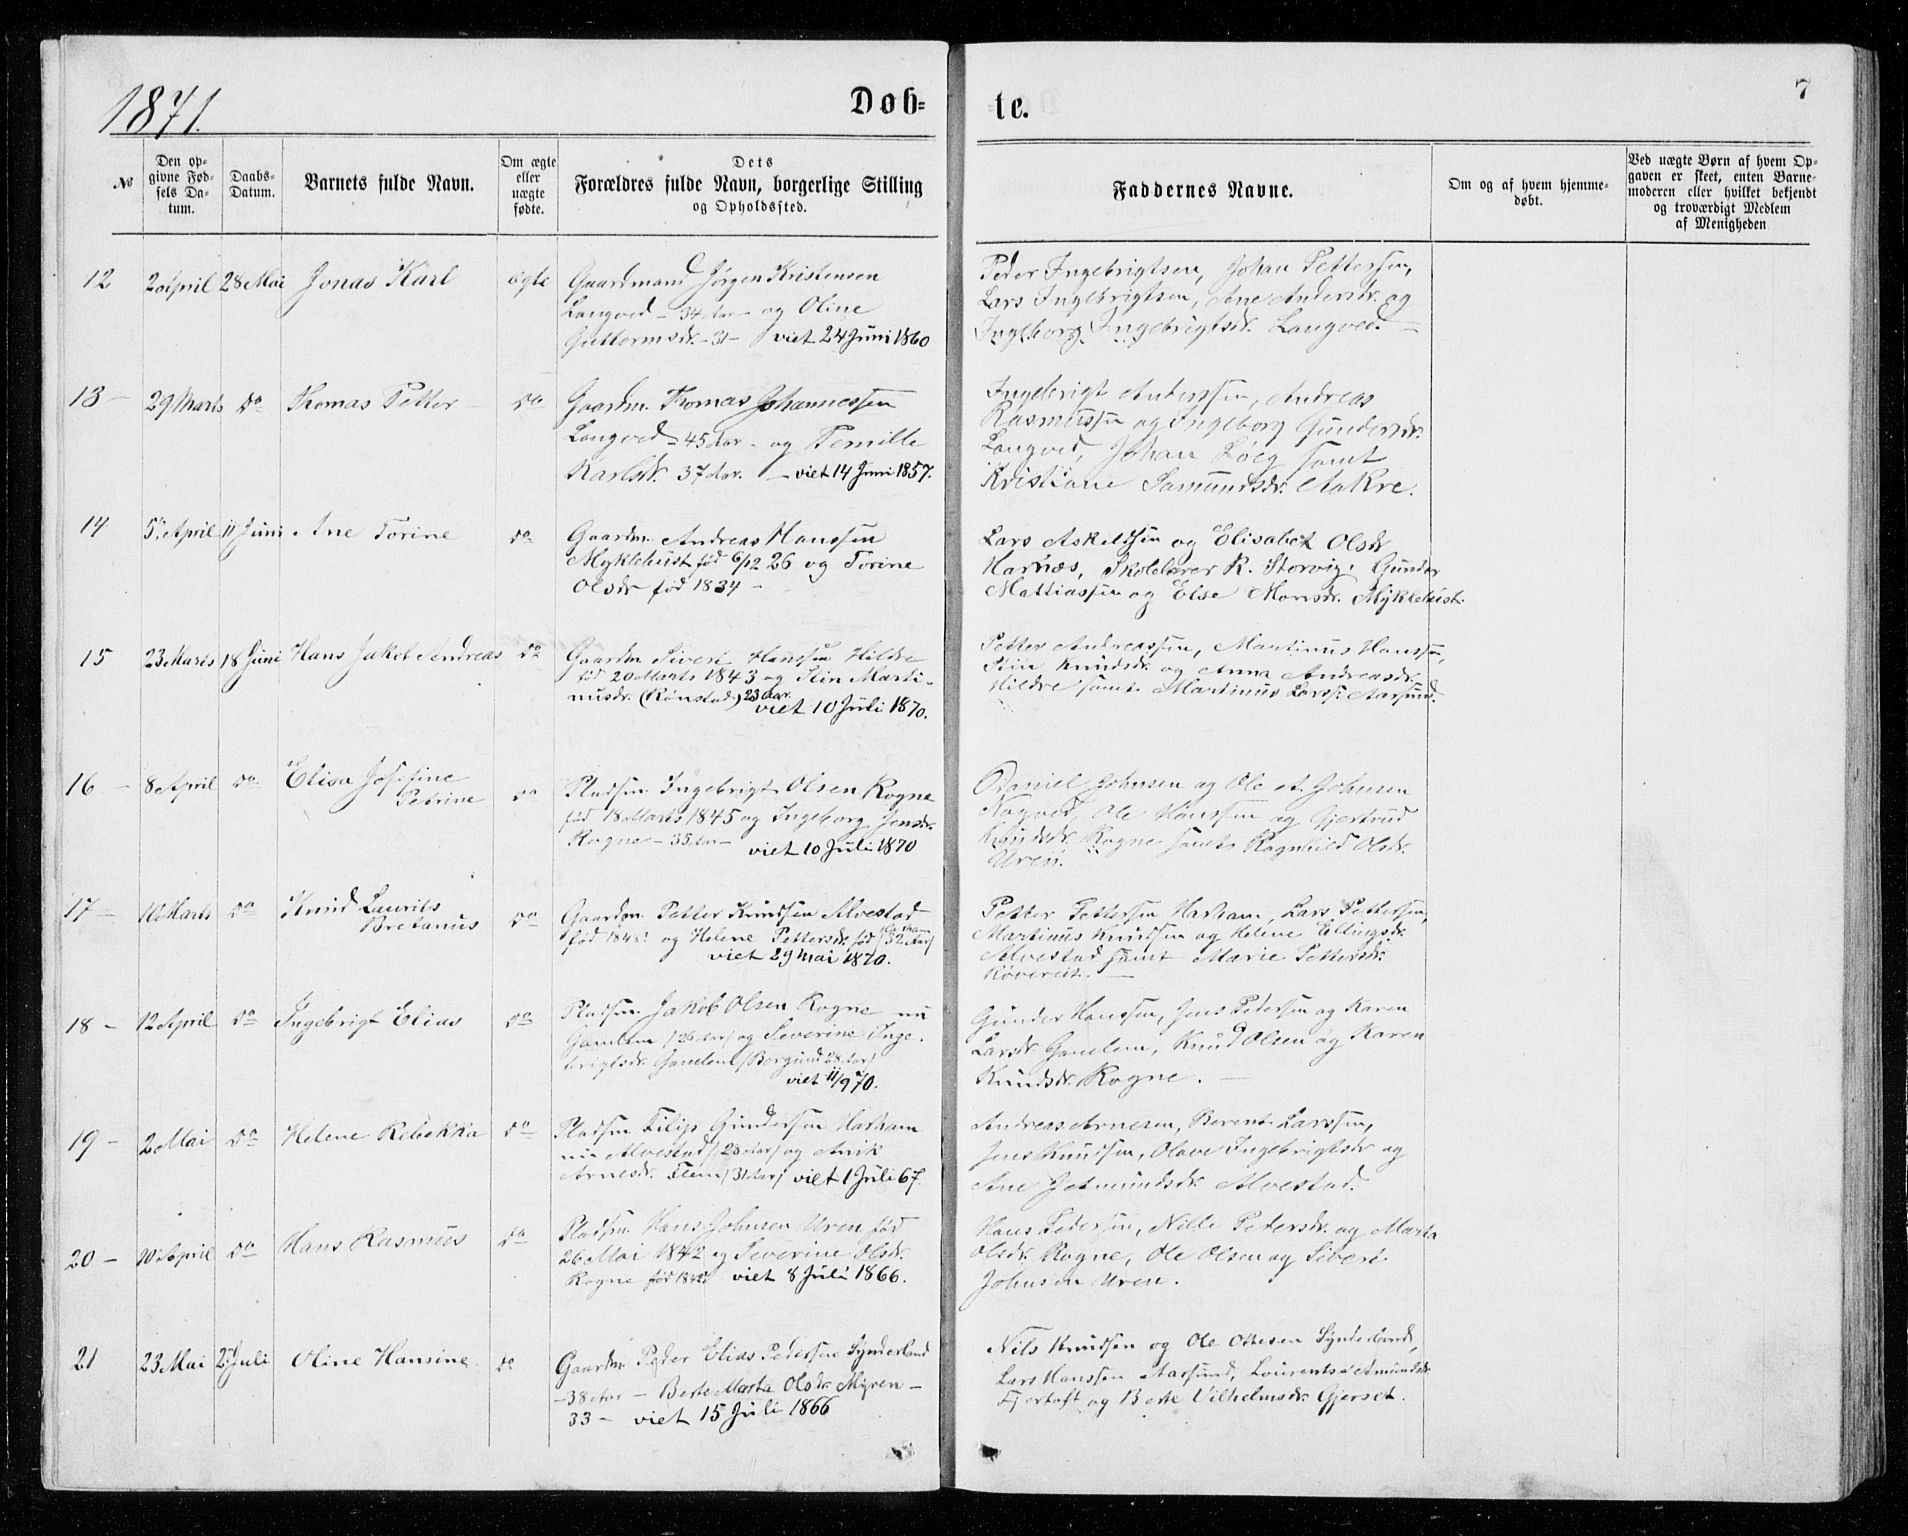 1871.
Døb-
te.
7
No
Den op-
givne Fød-
sels Da-
tum.
Daabs-
Datum.
Barnets fulde Navn.
Om ægte
eller
uægte
fødte.
Dets
Forældres fulde Navn, borgerlige Stilling
og Opholdssted.
Faddernes Navne.
Om og af hvem hjemme-
døbt.
Ved uægte Børn af hvem Op-
gaven er skeet, enten Barne-
moderen eller hvilket bekjendt
og troværdigt Medlem
af Menigheden
12
2 April
28 Mai
Jonas Karl
ægte
Gaardmand Jørgen Kristensen
Longved - 34 Aar - og Oline
Guttormsdr. - 31 - viet 24 Juni 1860
Peder Ingebrigtsen, Johan Pettersen,
Lars Ingebrigtsen, Ane Andersdr. og
Ingeborg Ingebrigtsdr. Longved. -
13 -
29 Marts
Do
Thomas Petter
Do
Gaardm. Thomas Johannessen
Longved - 45 Aar - og Pernille
Karlsdr. 37 Aar. - viet 14 Juni 1857.
Ingebrigt Anderssen, Andreas
Rasmussen og Ingeborg Gundersdr.
Longved, Johan samt
Kristiane Samundsdr. Aakre.
14
5 April
11 Juni
Ane Torine
Do
Gaardm. Andreas Hanssen
Myklebust fød 6/12 26 og Torine
Olsdr fød 1834 -
Lars Askeldsen og Elisabet Olsdr
Harnæs, Skolelærer R. Storvig. Gunder
Mattiassen og Else Monsdr. Myklebust.
15
23 Marts
18 Juni
Hans Jakob Andreas
Do
Gaardm. Sivert Hanssen Hildre
fød 20 Marts 1843 og Stin Marti-
nusdr. (Rønstad) 23 Aar.
viet 10 Juli 1870.
Petter Andreassen, Martinus Hanssen,
Stin Knudsdr. og Anna Andreasdr.
Hildre samt Martinus Larss. Aarsund.
16 -
8 April
Do
Elisa Josefine
Petrine
Do
Pladsm. Ingebrigt Olsen Rogne
fød 18 Marts 1845 og Ingeborg Jensdr.
Rogne - 35 Aar -
viet 10 Juli 1870
Daniel Johnsen og Ole A. Johnsen
Nogved, Ole Hanssen og Gjertrud
Knudsdr. Rogne samt Ragnhild Olsdr.
Uren.
17 -
10 Marts
Do
Knud Laurits
Bretanus
Do
Gaardm. Petter Knudsen Alvestad
fød 1848 og Helene Pettersdr. fød Harham (32 Aar)
viet 29 Mai 1870.
Petter Pettersen Harham, Lars Pettersen,
Martinus Knudsen og Helene Ellingsdr.
Alvestad samt Marie Pettersdr.
Røvereit. -
18 -
12 April
Do
Ingebrigt Elias
Do
Pladsm. Jakob Olsen Rogne nu
Gamlem (26 Aar) og Severine Inge-
brigtsdr. Gamlem (Borgund 28 Aar)
viet 11/9 70.
Gunder Hanssen, Jens Pedersen og Karen
Larsdr. Gamlem, Knud Olsen og Karen
Knudsdr. Rogne. -
19 -
2 Mai
Do
Helene Rebekka
Do
Pladsm Filip Gundersen Harham
nu Alvestad (28 Aar) og Anik
Arnesdr. Flem (31 Aar) viet 1 Juli 67.
Andreas Arnesen, Berent Larssen,
Jens Knudsen, Olave Ingebrigtsdr og
Ane J. Amundsdr. Alvestad.
20 -
10 April
Do
Hans Rasmus
Do
Pladsm. Hans Johnsen Uren fød
26 Mai 1842 og Severine Olsdr.
Rogne fød 1842 viet 8 Juli 1866.
Hans Pedersen, Nille Pedersdr. og Marta
Olsdr. Rogne, Ole Olsen og Sivert
Johnsen Uren.
21
23 Mai
2 Juli
Oline Hansine
Do
Gaardm. Peder Elias Pedersen Synderland
- 38 Aar - Berte Marta Olsdr. Myren -
33 - viet 15 Juli 1866
Nils Knudsen og Ole Ottesen Synderland,
Lars Hanssen Aarsund, Lourents Amundsdr.
Fjortoft og Berte Vilhelmsdr. Gjerset.